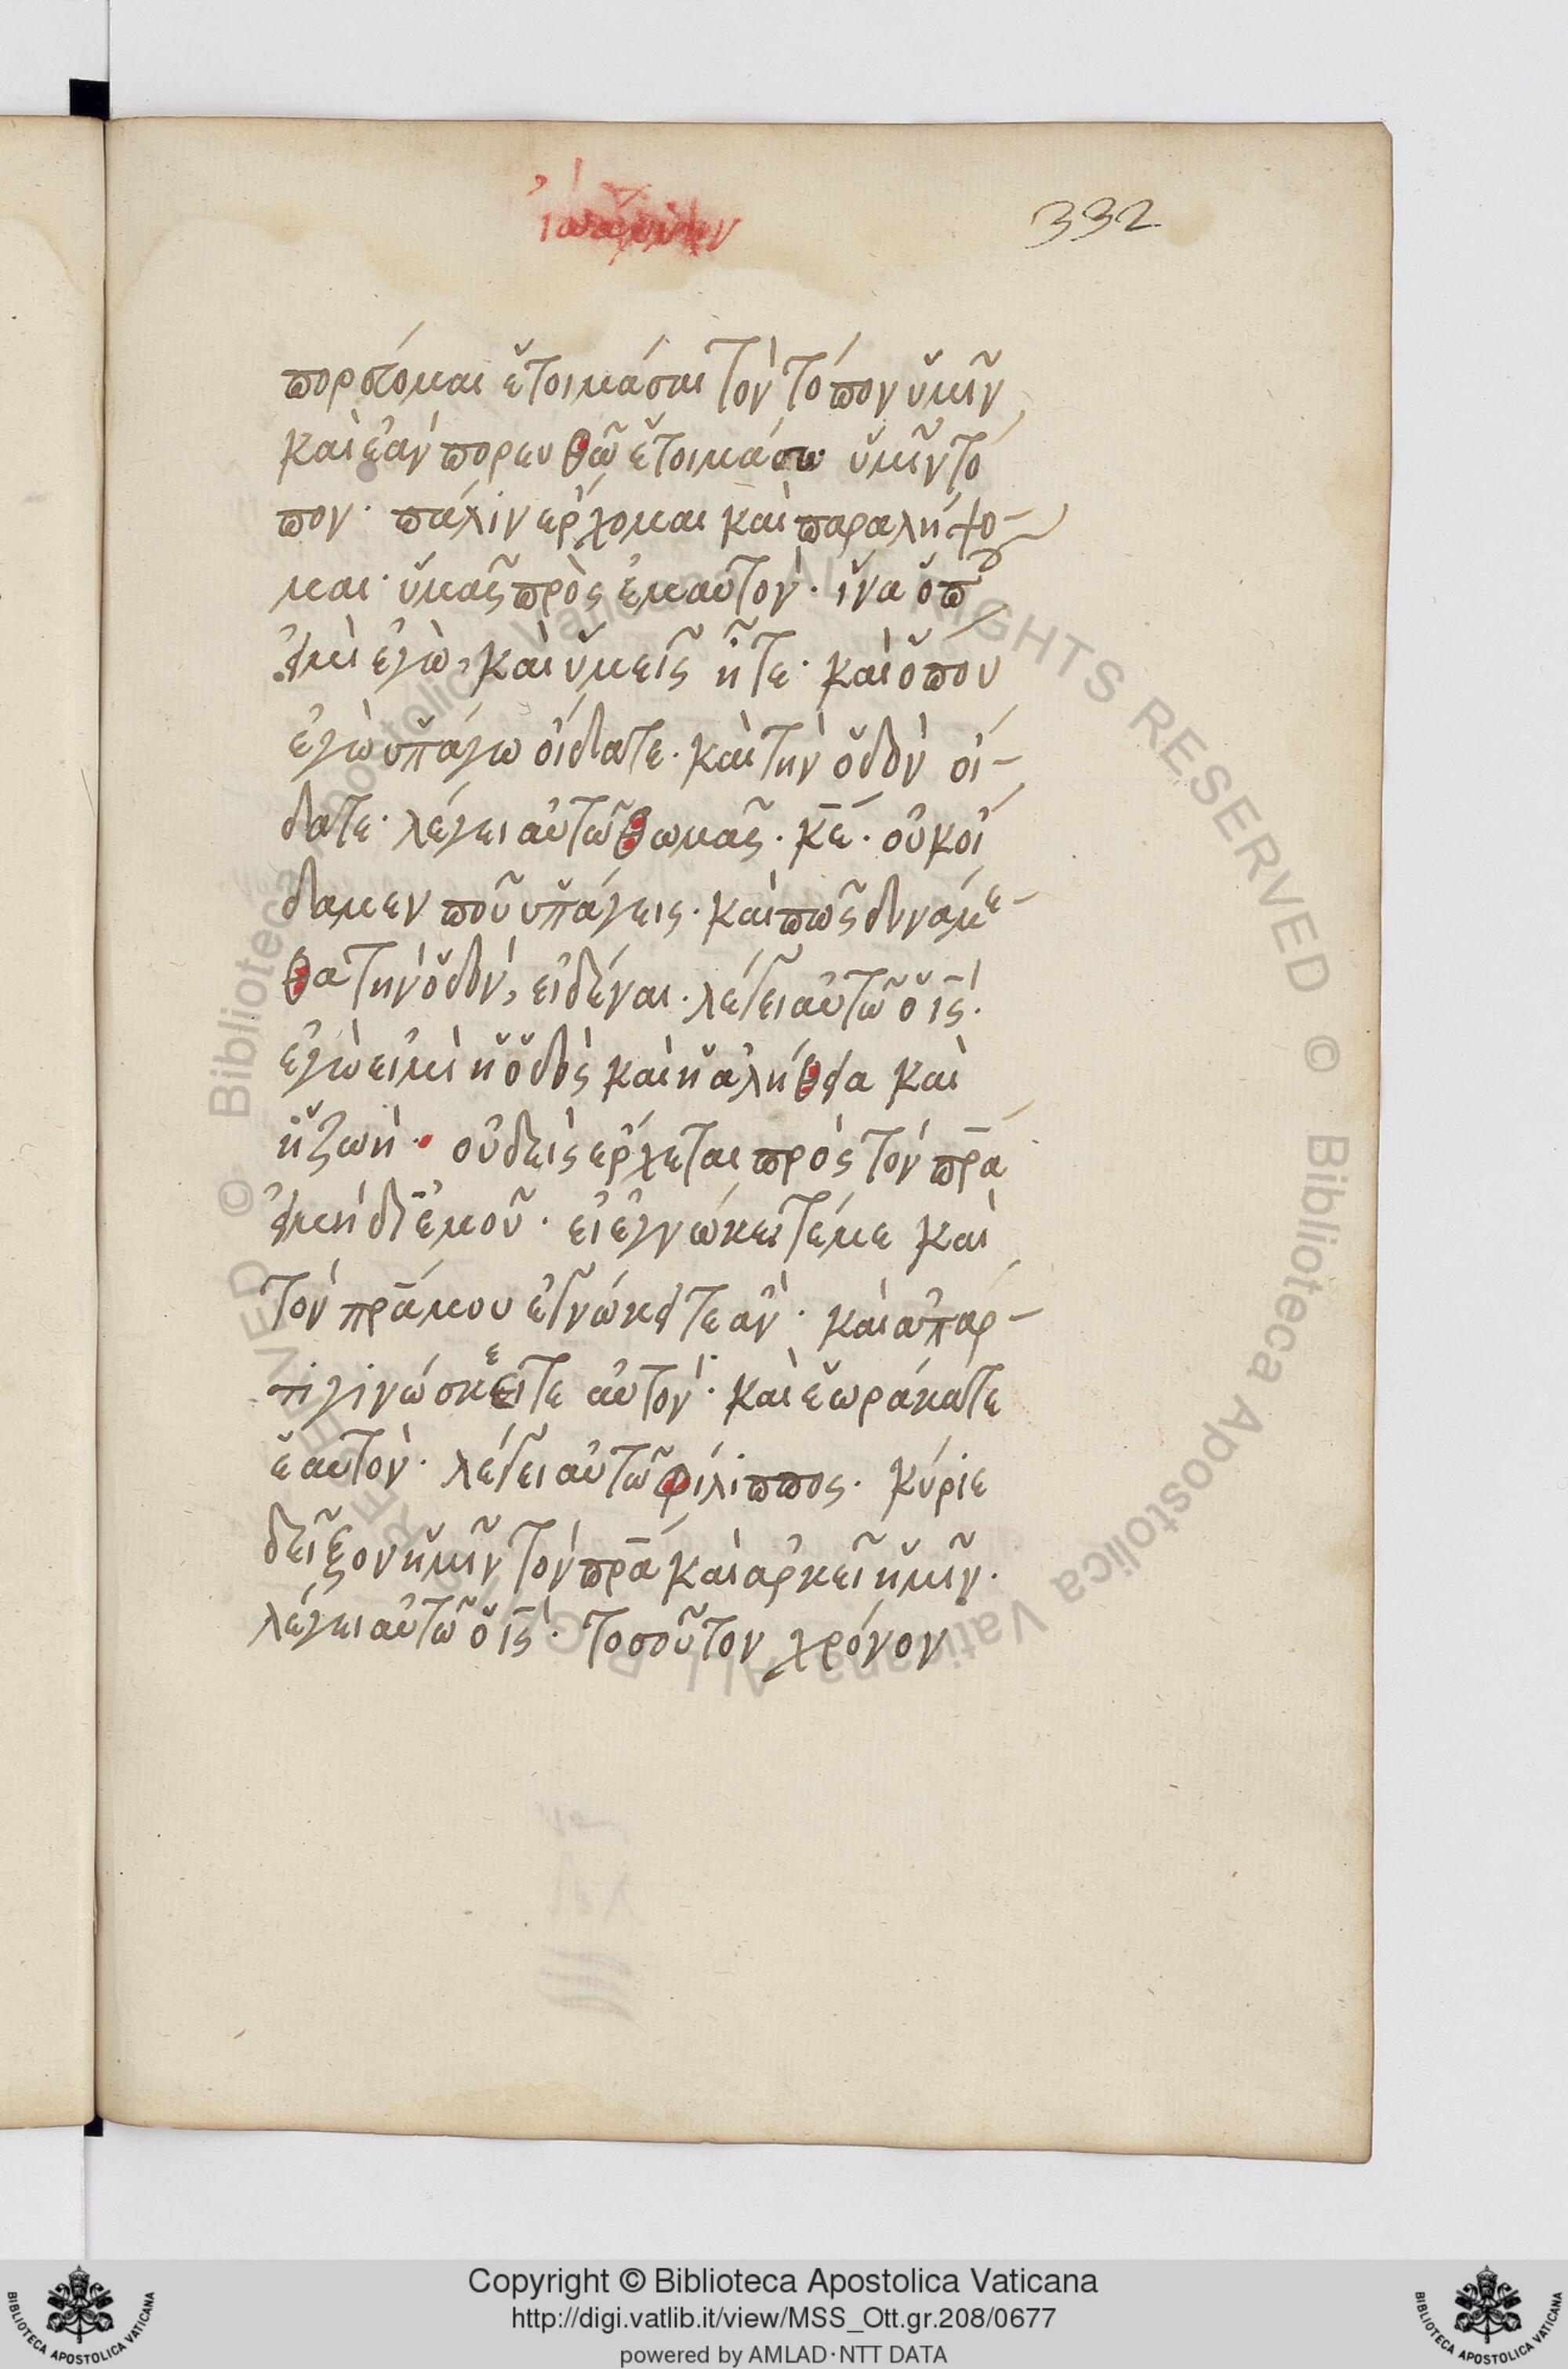 332
πορεύομαι ἑτοιμάσαι τὸν τόπον ὑμῖν
καὶ ἐὰν πορευθῶ ἑτοιμάσω ὑμῖν τό
πον· πάλιν ἔρχομαι καὶ παραλήψο-
μαι· ὑμᾶς πρὸς ἐμαυτόν· ἵνα ὅπου
εἰμὶ ἐγὼ, καὶ ὑμεῖς ἦτε· καὶ ὅπου
ἐγὼ ὑπάγω οἴδατε· καὶ τὴν ὁδὸν οἴ-
δατε· λέγει αὐτῶ θωμᾶς· κ̅ε̅· οὐκ οἴ
δαμεν ποῦ ὑπάγεις· καὶ πῶς δυνάμε-
θα τὴν ὁδὸν, εἰδέναι· λέγει αὐτῶ ὁ ι̅ς̅·
ἐγὼ εἰμὶ ἡ ὁδὸς καὶ ἡ ἀλήθεια καὶ
ἡ ζωὴ· οὐδεὶς ἔρχεται πρὸς τὸν π̅ρ̅α̅
εἰμὴ δι ἐμοῦ· εἰ ἐγνώκειτέ με καὶ
τὸν π̅ρ̅α̅ μου ἐγνώκειτε ἂν· καὶ ἀπαρ-
τι γινώσκεειτε αὐτὸν· καὶ ἑωράκατε
ἑαυτὸν· λέγει αὐτῶ φίλιππος· κύριε
δεῖξον ἡμῖν τὸν π̅ρ̅α̅ καὶ ἀρκεῖ ἡμῖν·
λέγει αὐτῶ ὁ ι̅ς̅· τοσοῦτον χρόνον
© Biblioteca Apostolica Vaticana ALL RIGHTS RESERVED © Biblioteca Apostolica Vaticana ALL RIGHTS RESERVED
Copyright © Biblioteca Apostolica Vaticana
http://digi.vatlib.it/view/MSS_Ott.gr.208/0677
powered by AMLAD·NTT DATA
BIBLIOTECA APOSTOLICA VATICANA
BIBLIOTECA APOSTOLICA VATICANA